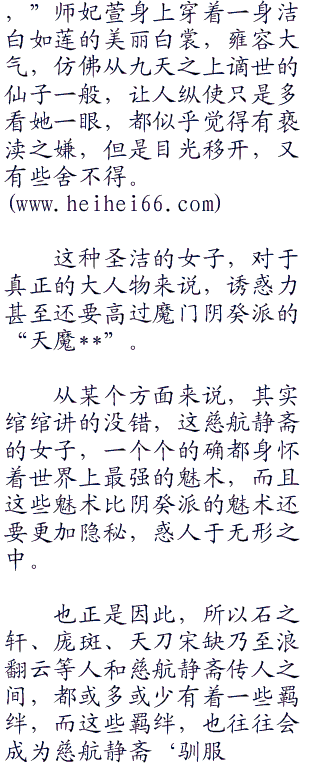 ，”师妃萱身上穿着一身洁
白如莲的美丽白裳，雍容大
气，仿佛从九天之上谪世的
仙子一般，让人纵使只是多
看她一眼，都似乎觉得有亵
渎之嫌，但是目光移开，又
有些舍不得。
(www.heihei66.com)
这种圣洁的女子，对于
真正的大人物来说，诱惑力
甚至还要高过魔门阴癸派的
“天魔**”。
从某个方面来说，其实
绾绾讲的没错，这慈航静斋
的女子，一个个的确都身怀
着世界上最强的魅术，而且
这些魅术比阴癸派的魅术还
要更加隐秘，惑人于无形之
中。
也正是因此，所以石之
轩、庞斑、天刀宋缺乃至浪
翻云等人和慈航静斋传人之
间，都或多或少有着一些羁
绊，而这些羁绊，也往往会
成为慈航静斋‘驯服